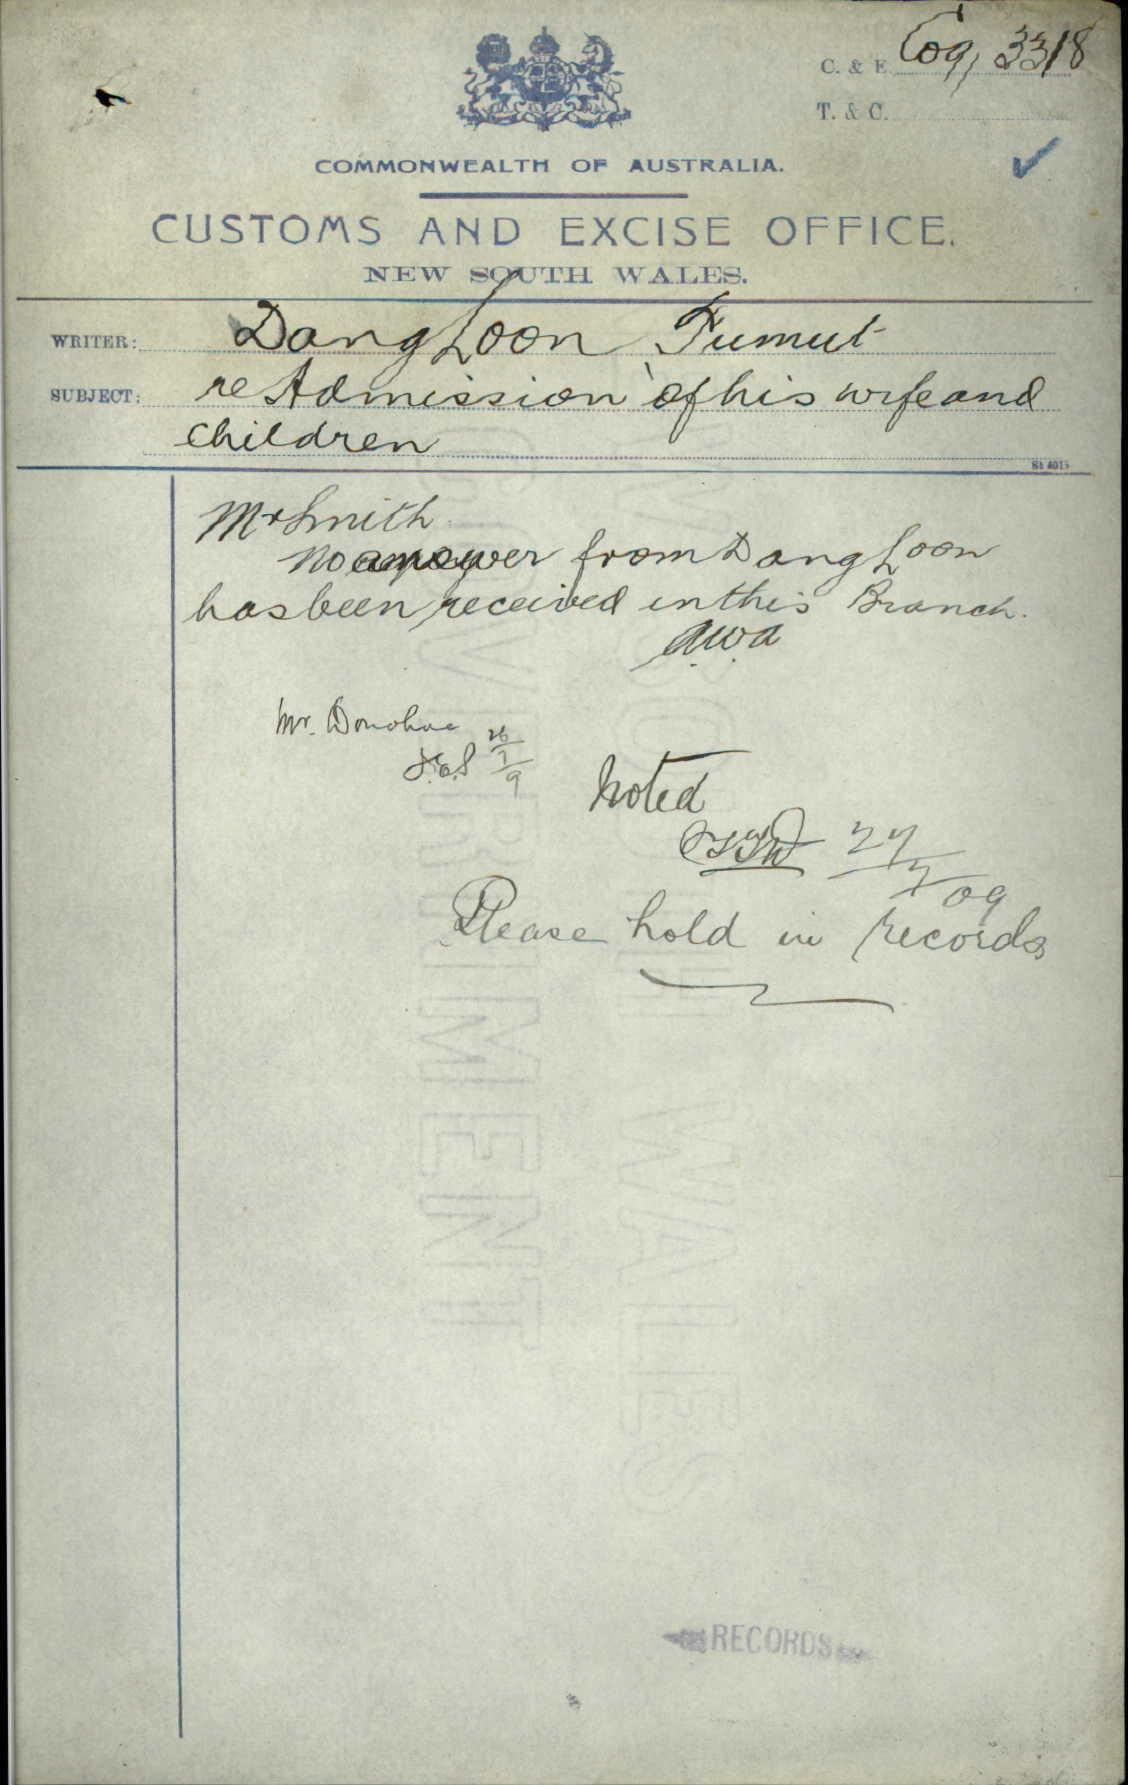 C. & E. C09/3318
T. & C.
COMMONWEALTH OF AUSTRALIA.
CUSTOMS AND EXCISE OFFICE.
NEW SOUTH WALES.
WRITER: Dang Loon Tumut
SUBJECT: re Admission of his wife and
children
Mr Smith
No answer from Dang Loon
has been received in this Branch.
AWA
Mr. Donohoe
26/7/9
Noted
27/7/09
Please hold in records
RECORDS
NEW SOUTH WALES
GOVERNMENT